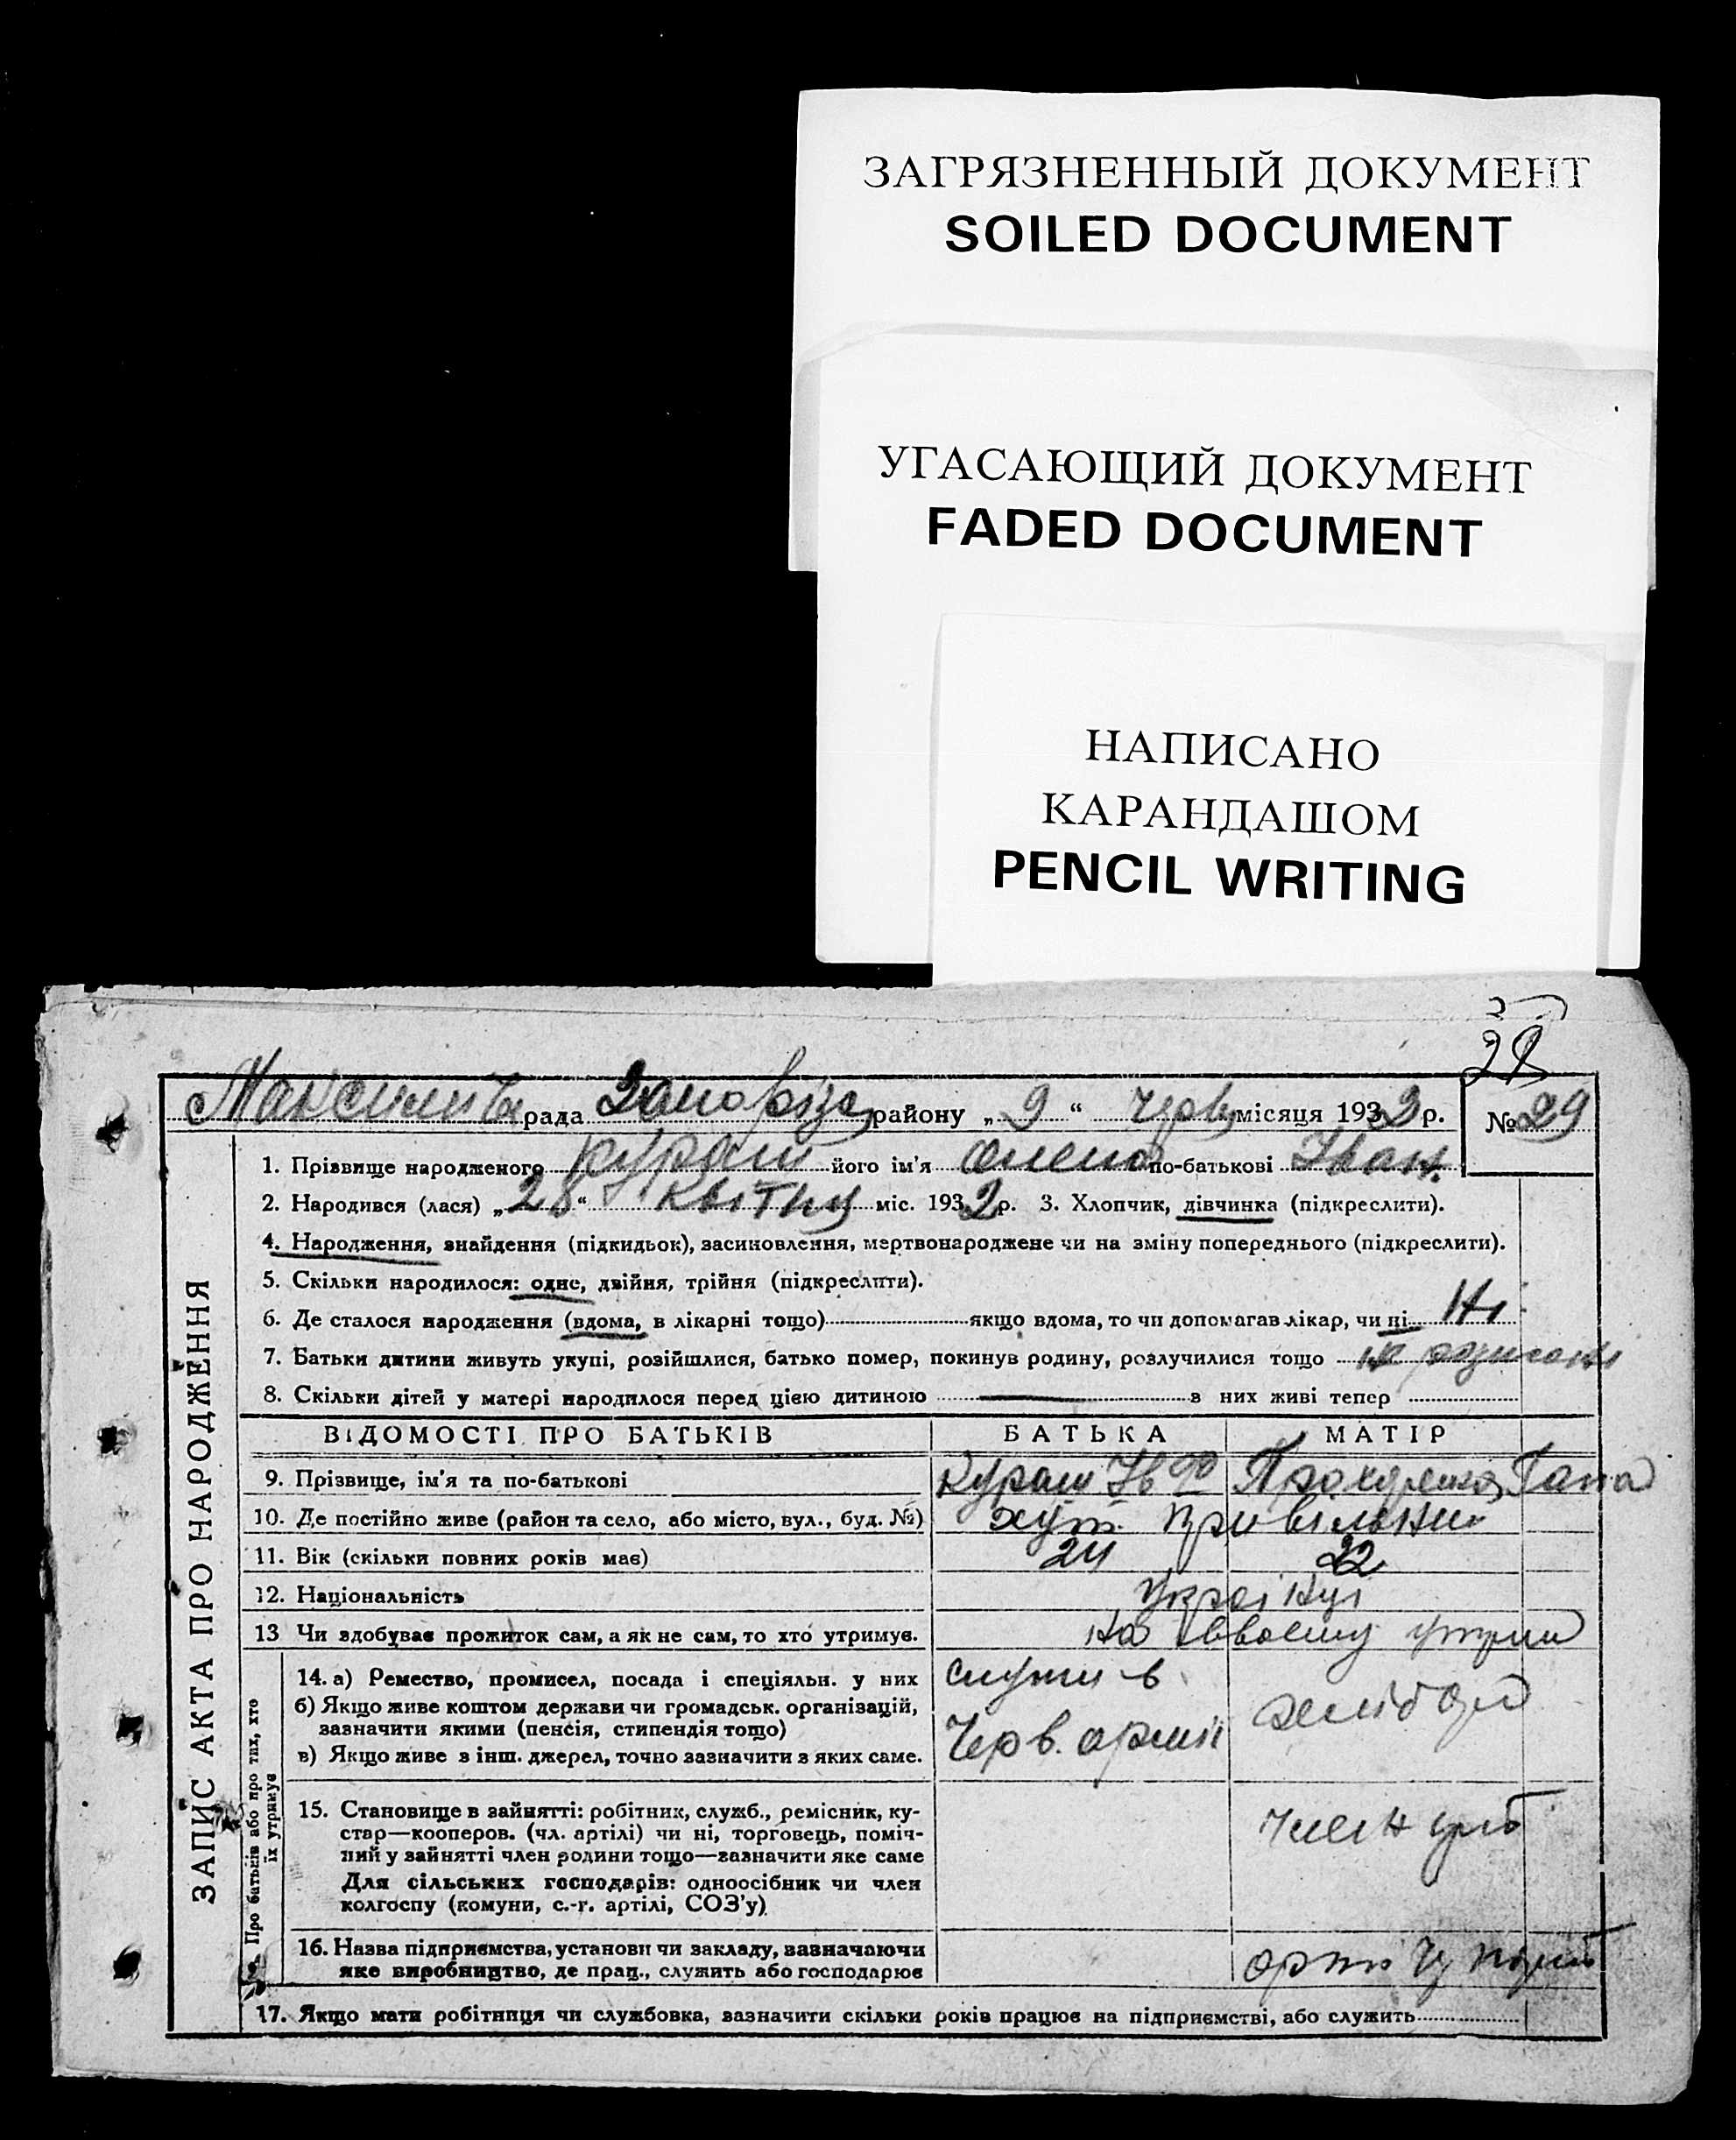 ЗАГРЯЗНЕННЫЙ ДОКУМЕНТ
SOILED DOCUMENT
УГАСАЮЩИЙ ДОКУМЕНТ
FADED DOCUMENT
НАПИСАНО
КАРАНДАШОМ
PENCIL WRITING
28
рада району „ 9 “ місяця 1932 р. № 29
ЗАПИС АКТА ПРО НАРОДЖЕННЯ
1. Прізвище народженого Кураш його ім'я Олена по-батькові Іван.
2. Народився (лася) „28“ Квітня міс. 1932 р. 3. Хлопчик, дівчинка (підкреслити).
4. Народження, знайдення (підкидьок), засиновлення, мертвонароджене чи на зміну попереднього (підкреслити).
5. Скільки народилося: одне, двійня, трійня (підкреслити).
6. Де сталося народження (вдома, в лікарні тощо) якщо вдома, то чи допомагав лікар, чи ні Ні
7. Батьки дитини живуть укупі, розійшлися, батько помер, покинув родину, розлучилися тощо
8. Скільки дітей у матері народилося перед цією дитиною — в них живі тепер
ВІДОМОСТІ ПРО БАТЬКІВ БАТЬКА МАТІР
9. Прізвище, ім'я та по-батькові Кураш Ів Гапа
10. Де постійно живе (район та село, або місто, вул., буд. №) хут.
11. Вік (скільки повних років має) 24 22
12. Національність Українці
13 Чи здобував прожиток сам, а як не сам, то хто утримує. На
Про батьків або про тих, хто їх утримує
14. а) Ремество, промисел, посада і спеціяльн. у них
б) Якщо живе коштом держави чи громадськ. організацій,
зазначити якими (пенсія, стипендія тощо)
в) Якщо живе з інш. джерел, точно зазначити з яких саме.
служи в
Черв. армії
15. Становище в зайнятті: робітник, служб., ремісник, ку-
стар—кооперов. (чл. артілі) чи ні, торговець, поміч-
ний у зайнятті член родини тощо—зазначити яке саме
Для сільських господарів: одноосібник чи член
колгоспу (комуни, с.-г. артілі, СОЗ'у)
член
16. Назва підприємства, установи чи закладу, зазначаючи
яке виробництво, де прац., служить або господарює
17. Якщо мати робітниця чи службовка, зазначити скільки років працює на підприємстві, або служить